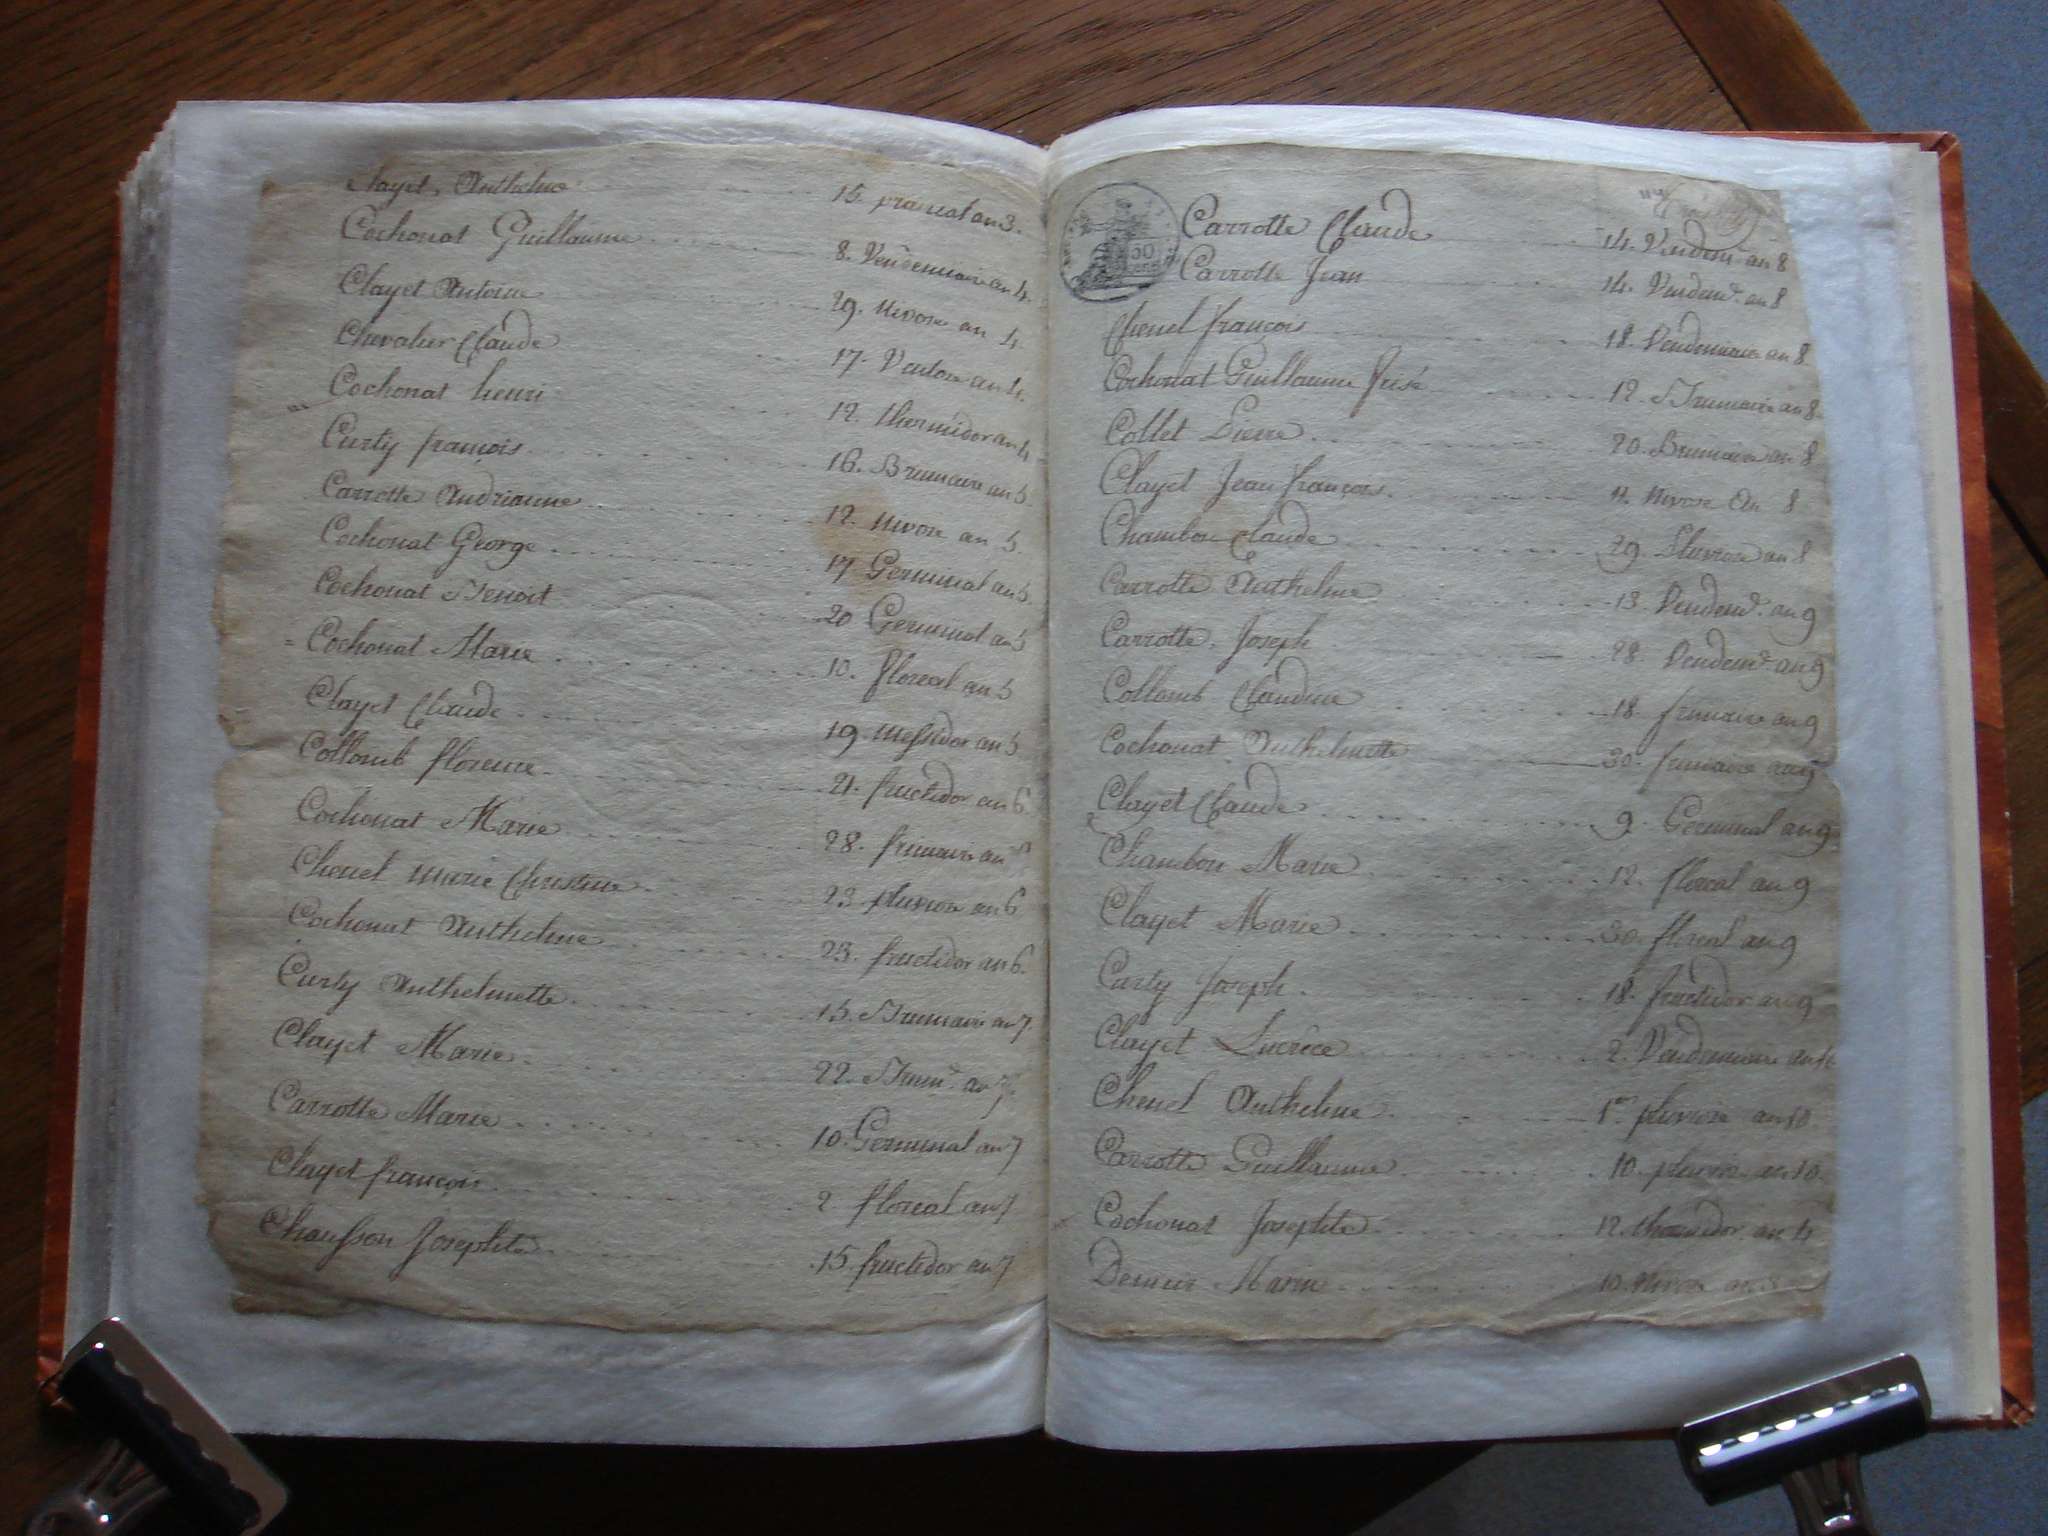 Clayet, Anthelme 15. prairial an 3.
Cochonat Guillaume 8. Vendemiaire an 4.
Clayet Antoine 29. Nivose an 4.
Chevalier Claude 17. Ventose an 4.
Cochonat henri 12. thermidor an 4
Curty françois 16. Brumaire an 5
Carrotte Andrianne 12. Nivose an 5.
Cochonat George 17 Germinal an 5.
Cochonat Benoit 20 Germinal an 5
Cochonat Marie 10. floreal an 5
Clayet Claude 19. Messidor an 5
Collomb florence 21. fructidor an 6
Cochonat Marie 28. frimaire an
Chenel marie Christine 23. pluviose an 6
Cochonat Anthelme 23. fructidor an 6.
Curty Anthelmette 15. Brumaire an 7.
Clayet Marie 22. Brum.e an 7.
Carrotte Marie 10. Germinal an 7
Clayet françois 2 floreal an 7
Chausson Josephte 15. fructidor an 7
50
Carrotte Claude 14. Vendem. an 8
Carrotte Jean 14. Vendem.e an 8
Chenel françois 18. Vendemiaire an 8
Cochonat Guillaume frisé 12. Brumaire an 8.
Collet Pierre 20. Brumaire an 8
Clayet Jean françois. Nivose An 8
Chambon Claude 29 Pluviose an 8
Carrotte Anthelme 13. Vendem.e an 9
Carrotte Joseph 28. Vendem.e an 9
Collomb Claudine 18. frimaire an 9
Cochonat Anthelmette 30. frimaire an 9
Clayet Claude 9. Germinal an 9.
Chambon Marie 12. floreal an 9
Clayet Marie 30. floreal an 9
Curty Joseph. 18. fructidor an 9
Clayet Lucrèce 2. Vendemiaire an 10
Chenel Anthelme 1er pluviose an 10
Carrotte Guillaume 10. pluviose an 10.
Cochonat Josephte 12. thermidor an 4
Demeur Marie 10. Nivose an 8